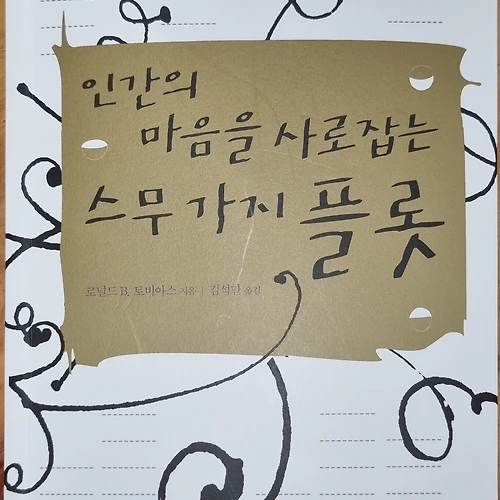 인간의
마음을 사로잡는
스무 가지 플롯
로널드 B. 토비아스 지음 | 김석만 옮김